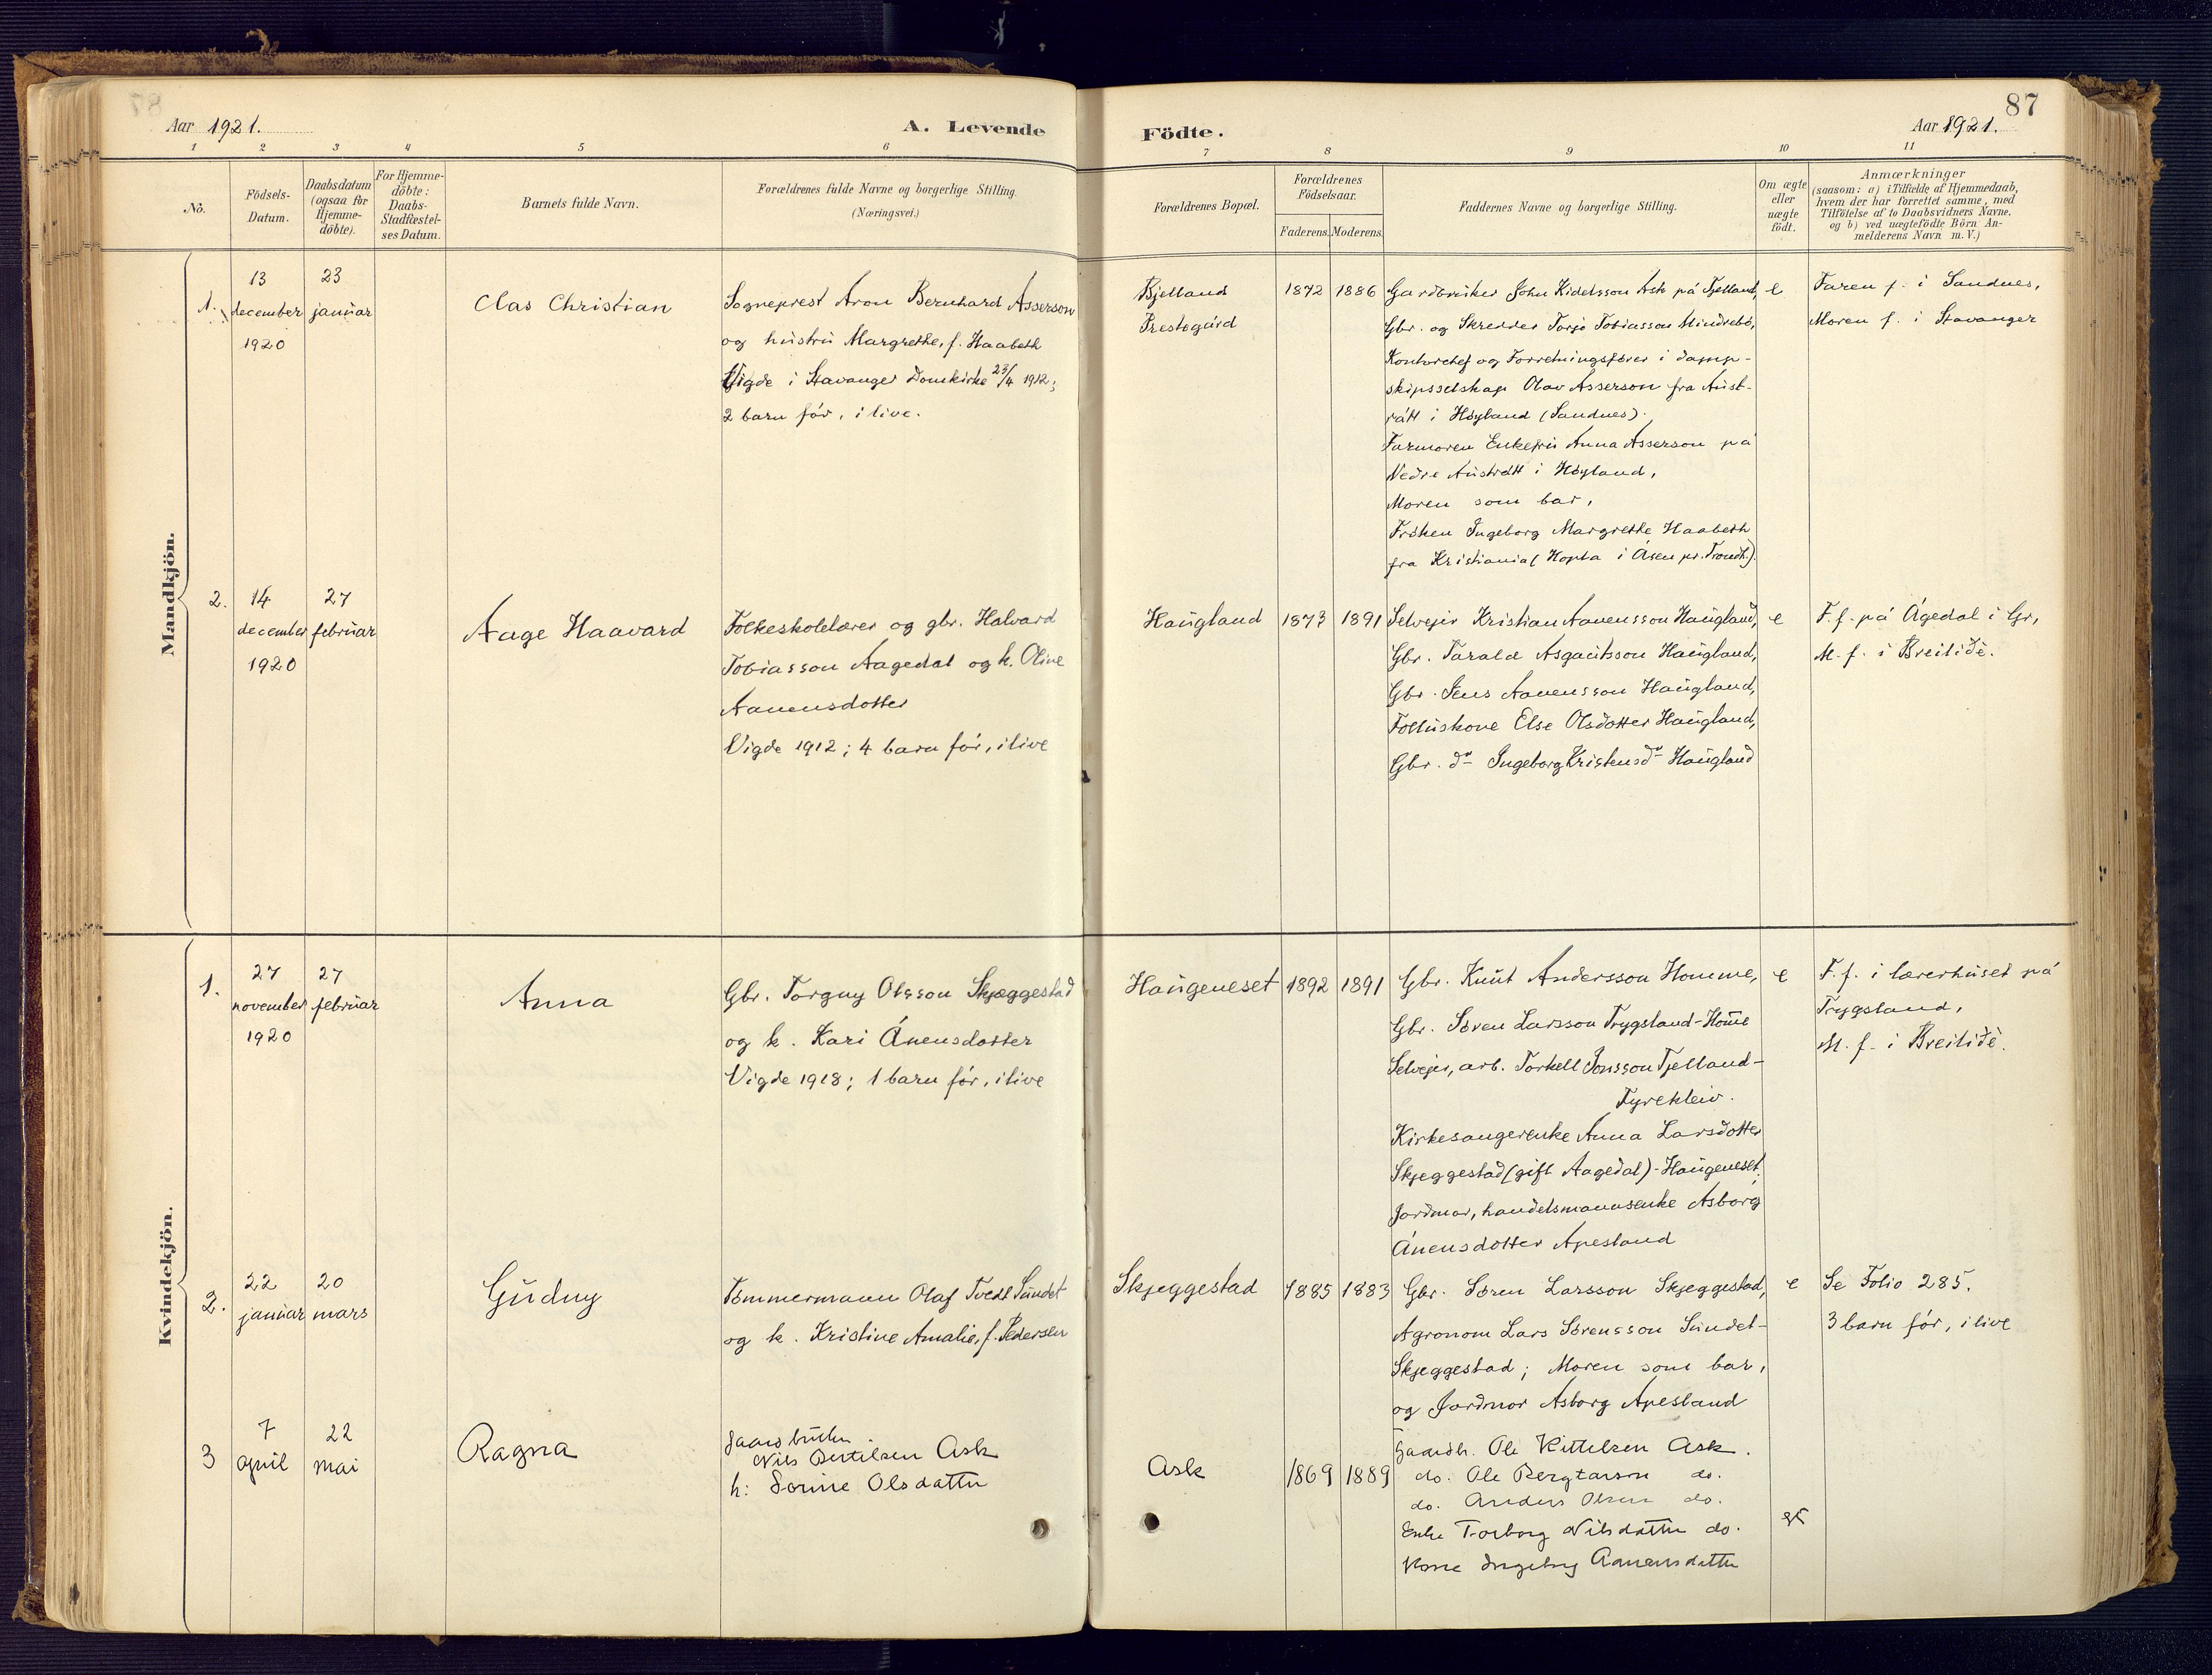 87
Aar 1921.
A. Levende
Födte.
Aar 1921.
1 2 3 4 5 6 7 8 9 10 11
No.
Födsels-
Datum.
Daabsdatum
(ogsaa for
Hjemme-
döbte).
For Hjemme-
döbte:
Daabs-
Stadfæstel-
ses Datum.
Barnets fulde Navn.
Forældrenes fulde Navne og borgerlige Stilling.
(Næringsvei.)
Forældrenes Bopæl.
Forældrenes
Födselsaar.
Faderens. Moderens.
Faddernes Navne og borgerlige Stilling.
Om ægte
eller
uægte
födt.
Anmærkninger
(saasom: a) i Tilfælde af Hjemmedaab,
hvem der har forrettet samme, med
Tilföielse af to Daabsvidners Navne.
og b) ved uægtefödte Börn An-
melderens Navn m. V.)
Mandkjön.
1.
13
december
1920
23
januar
Clas Christian
Sogneprest Aron Bernhard Asserson
og hustru Margrethe, f. Haabeth
Vigde i Stavanger Domkirke 23/4 1912;
2 barn før, i live.
Bjelland
Prestegård
1872 1886
Gardbruker John Kidelsson Ask på Fjelland,
Gbr. og Skredder Torjo Tobiasson Mindrebö,
Kontorchef og Forretningsfører i damp-
skipsselskap Olav Asserson fra Aust-
rått i Høyland (Sandnes).
Farmoren Enkefru Anna Asserson på
Nedre Austrått i Høyland,
Moren som bar,
Frøken Ingeborg Margrethe Haabeth
fra Kristiania (Hopla i Åsen pr. Trondh.).
e
Faren f. i Sandnes,
Moren f. i Stavanger
2.
14
december
1920
27
februar
Aage Haavard
Folkeskolelærer og gbr. Halvard
Tobiasson Aagedal og k. Oline
Aanensdotter
Vigde 1912; 4 barn før, i live
Haugland
1873 1891
Selvejer Kristian Aanensson Haugland,
Gbr. Tarald Asgautsson Haugland,
Gbr. Jens Aanensson Haugland,
Følluskone Else Olsdotter Haugland,
Gbr. dr Ingeborg Kristensdr Haugland
e
F. f. på Ågedal i Gr,
M. f. i Breilidè.
Kvindekjön.
1.
27
november
1920
27
februar
Anna
Gbr. Torgny Olsson Skjæggestad
og k. Kari Ånensdotter
Vigde 1918; 1 barn før, i live
Haugeneset
1892 1891
Gbr. Knut Andersson Homme,
Gbr. Søren Larsson Trygsland-Hom̄e
Selvejer, arb. Torkell Jonsson Fjelland-
Tyrekleiv.
Kirkesangerenke Anna Larsdotter
Skjeggestad (gift Aagedal)-Haugeneset,
Jordmor, handelsmannsenke Asborg
Ånensdotter Apesland
e
F. f. i lærerhuset på
Trygsland,
M. f. i Breilidè.
2.
22
januar
20
mars
Gudny
Tømmermann Olaf Tvedt Sundet
og k. Kristine Amalie, f. Pedersen
Skjeggestad
1885 1883
Gbr. Søren Larsson Skjeggestad,
Agronom Lars Sørensson Sundet-
Skjeggestad; Moren som bar,
og Jordmor Asborg Apesland
e
Se Folio 285.
3 barn før, i live
3
7
april
22
mai
Ragna
Nils Bertelsen Ask
h: Sorine Olsdatter
Ask
1869 1889
Gaardb. Ole Kittelsen Ask.
do. Ole Bergtarson do.
do. Anders Olsen do.
Enke Torborg Nilsdatter do.
Kone Ingeborg Aanensdatter